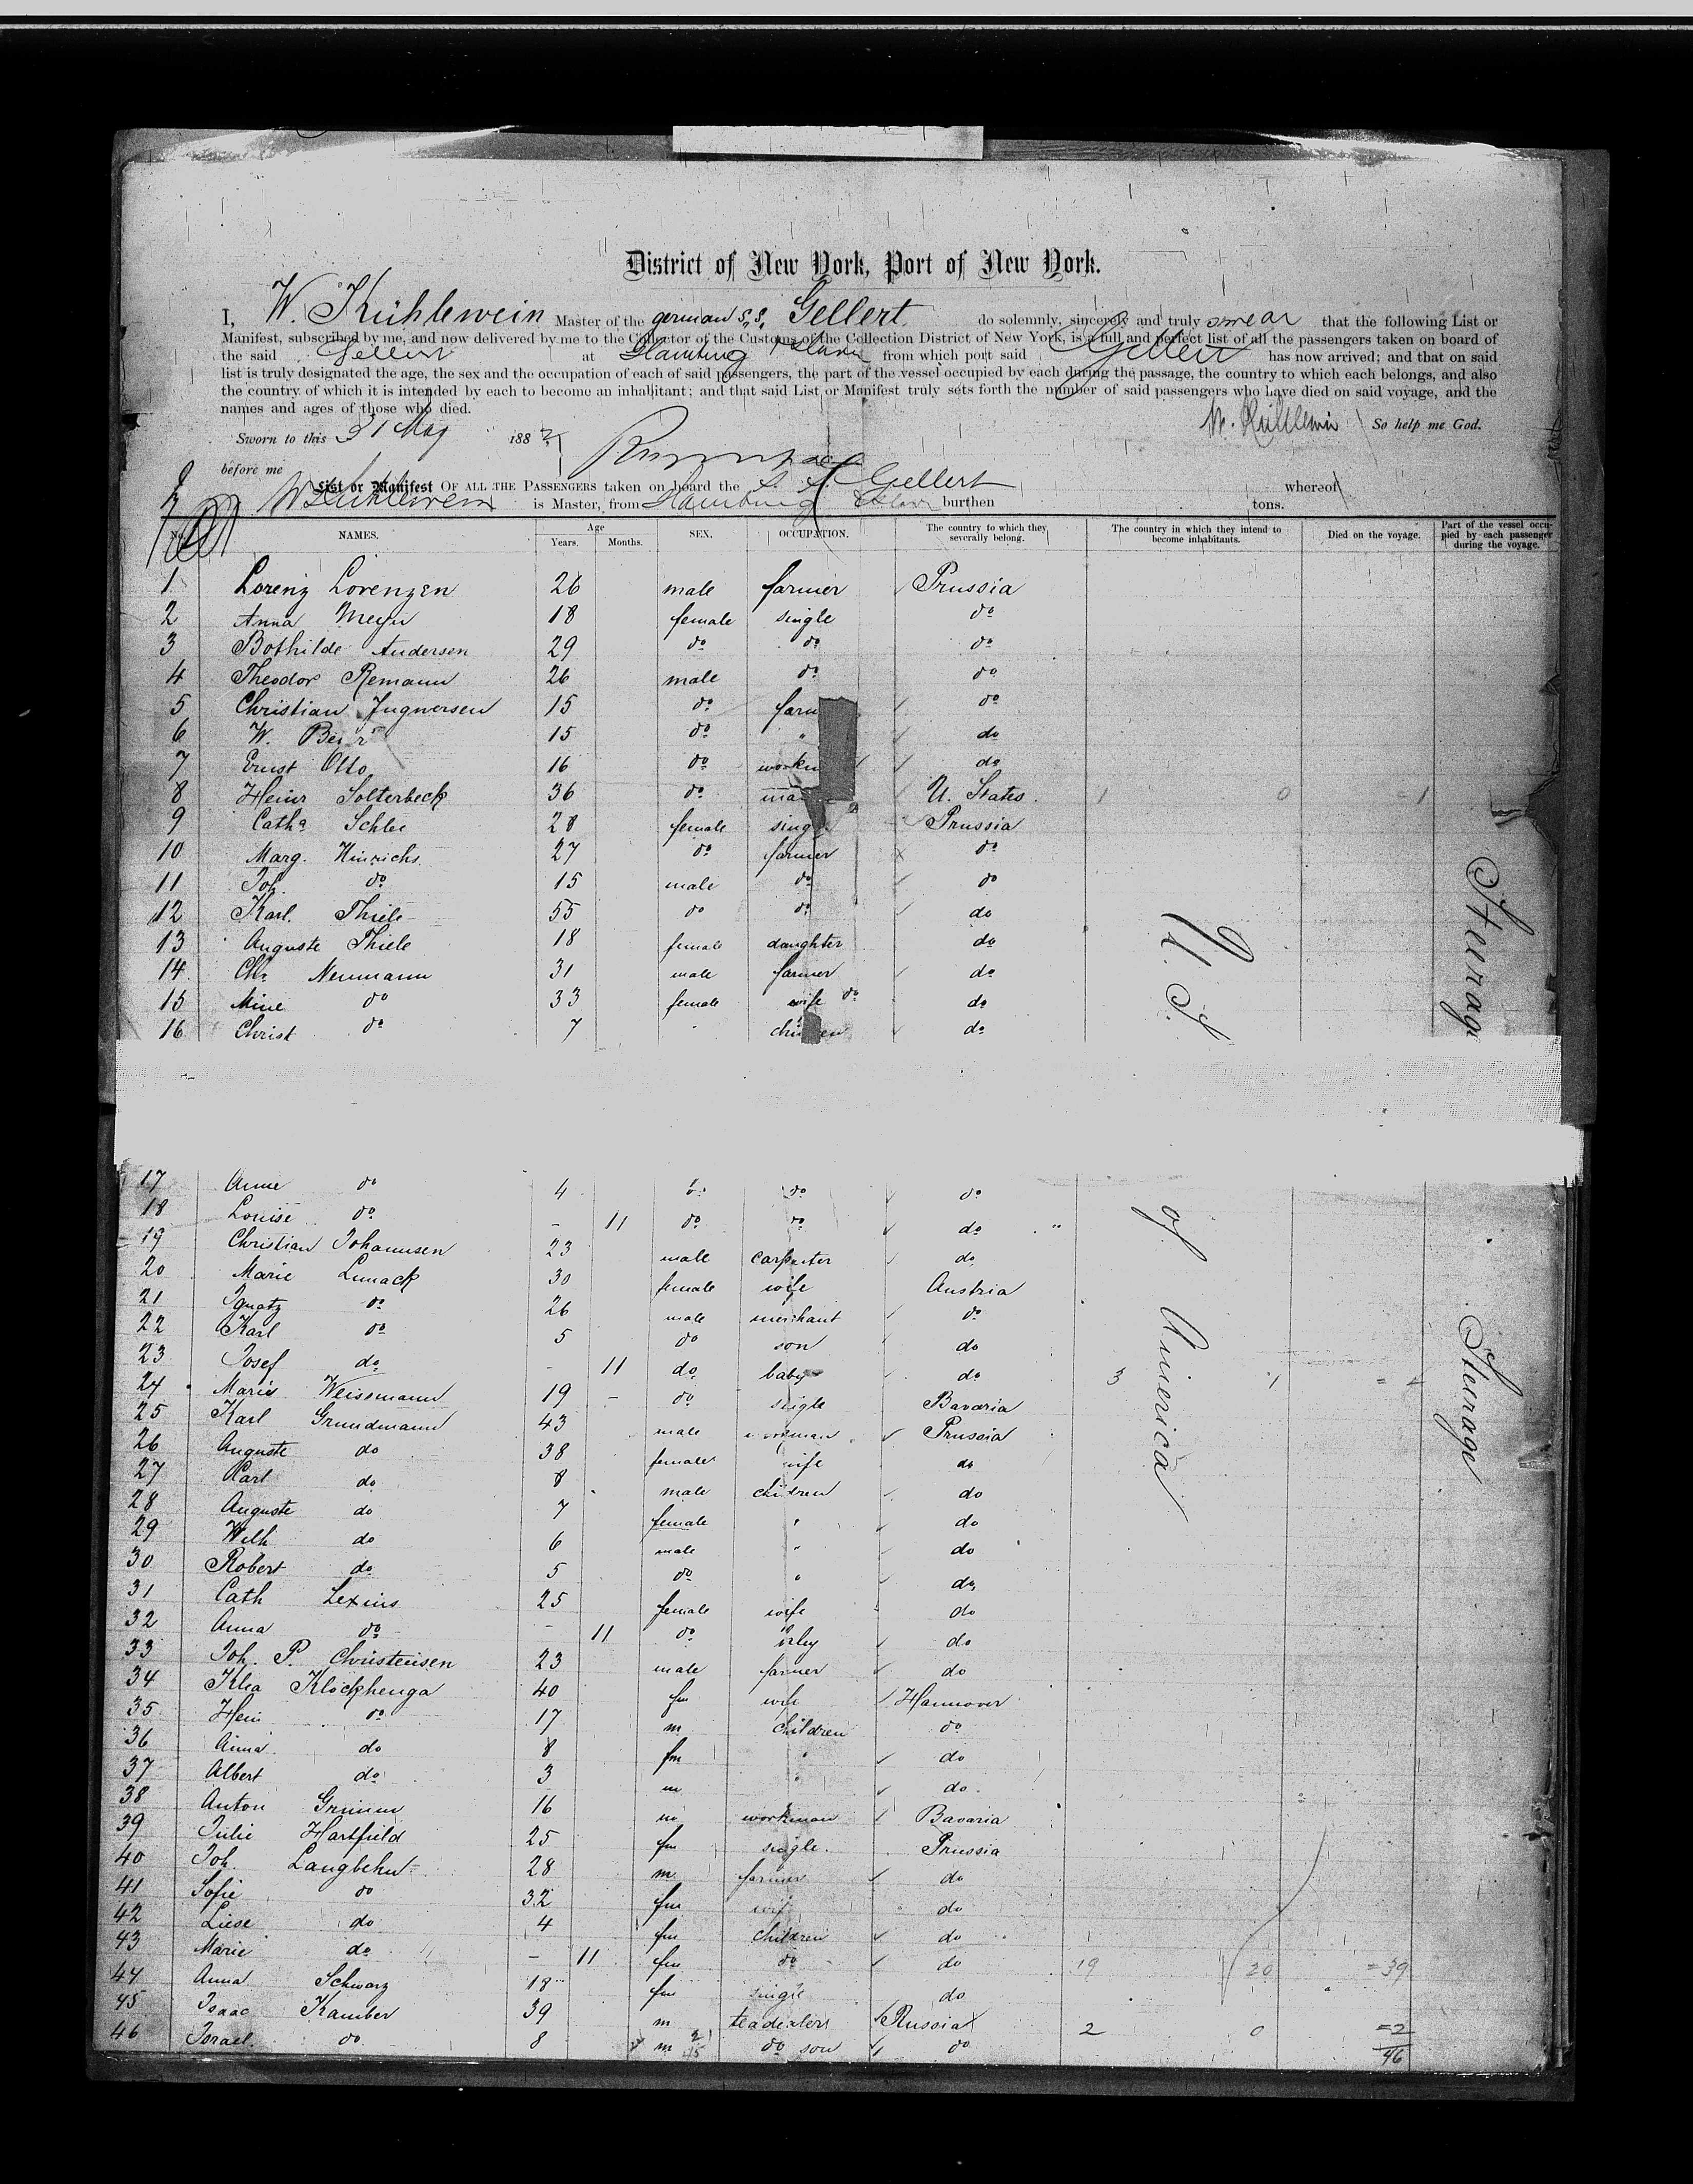 District of New York, Port of New York.
I, W. Kühlewein Master of the german S.S. Gellert do solemnly, sincerely and truly swear that the following List or
Manifest, subscribed by me, and now delivered by me to the Collector of the Customs of the Collection District of New York, is a full and perfect list of all the passengers taken on board of
the said Gellert at Hamburg & Havre from which port said Gellert has now arrived; and that on said
list is truly designated the age, the sex and the occupation of each of said passengers, the part of the vessel occupied by each during the passage, the country to which each belongs, and also
the country of which it is intended by each to become an inhabitant; and that said List or Manifest truly sets forth the number of said passengers who have died on said voyage, and the
names and ages of those who died.
W. Kühlewein So help me God.
Sworn to this 31 May 188
before me
List or Manifest OF ALL THE PASSENGERS taken on board the S. S. Gellert whereof
W Kühlewein is Master, from Hamburg & Havre burthen tons.
No. NAMES. Age Years. Months. SEX. OCCUPATION. The country to which they severally belong. The country in which they intend to become inhabitants. Died on the voyage. Part of the vessel occupied by each passenger during the voyage.
1 Lorenz Lorenzen 26 male farmer Prussia
2 Anna Meyn 18 female single do
3 Bothilde Andersen 29 do do do
4 Theodor Remann 26 male do do
5 Christian Ingwersen 15 do farm do
6 W. 15 do " do
7 Ernst Otto 16 do workm do
8 Heinr Solterbeck 36 do ma U. States 1 0 =1
9 Catha Schlee 28 female singl Prussia
10 Marg. Hinrichs 27 do farmer do
11 Joh. do 15 male do do
12 Karl Thiele 55 do do do
13 Auguste Thiele 18 female daughter do
14 Chr. Neumann 31 male farmer do
15 Mine do 33 female wife do do
16 Christ do 7 children do
U. S. of America
Steerage
17 Anne do 4 do do do
18 Louise do - 11 do do do
19 Christian Johannsen 23 male carpenter do
20 Marie Lunack 30 female wife Austria
21 Ignatz do 26 male merchant do
22 Karl do 5 do son do
23 Josef do - 11 do baby do
24 Marie Weissmann 19 - do single Bavaria 3 1 = 4
25 Karl Grundmann 43 male workman Prussia
26 Auguste do 38 female wife do
27 Karl do 8 male children do
28 Auguste do 7 female " do
29 Wilh do 6 male " do
30 Robert do 5 do " do
31 Cath Lexius 25 female wife do
32 Anna do - 11 do do
33 Joh. P. Christensen 23 male farmer do
34 Klea Klockhenga 40 fm wife Hannover
35 Hein do 17 m children do
36 Anna do 8 fm " do
37 Albert do 3 m " do
38 Anton Grimm 16 m workman Bavaria
39 Julie Hartfield 25 fm single Prussia
40 Joh. Langbehn 28 m farmer do
41 Sofie do 32 fm wife do
42 Liese do 4 fm children do
43 Marie do - 11 fm do do
44 Anna Schwarz 18 fm single do 19 20 =39
45 Isaac Kamber 39 m teadealer Russia
46 Israel do 8 m do son do 2 0 =2
46
Steerage